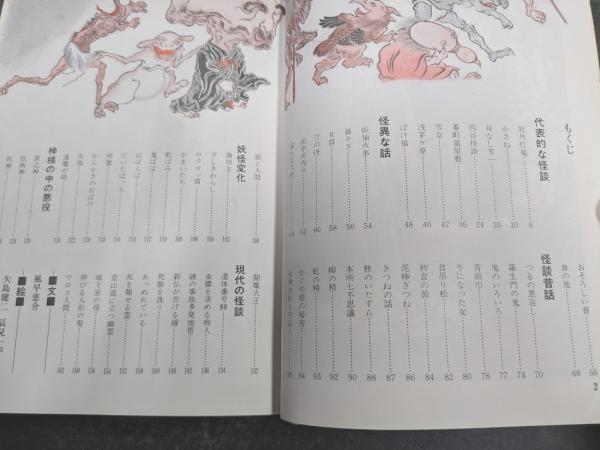 もくじ
代表的な怪談
牡丹灯籠 6
かさね 10
耳なし芳一 20
四谷怪談 24
番町皿屋敷 36
雪女 42
浅茅ケ原 46
ばけ猫 48
怪異な話
振袖火事 54
鼻そぎ 56
女首 58
刀の怪 60
田中河内介 62
64
おそろしい音 66
血の池 68
怪談昔話
つるの恩返 70
羅生門の鬼 74
鬼のいろいろ 77
青頭巾 78
牛になった女 80
首吊り松 82
初音の鼓 84
泥棒ぎつね 86
きつねの話 87
狸のいたずら 88
本所七不思議 90
柳の精 92
蛇の精 93
かぐや姫の秘密 94
2
猫と人間
妖怪変化
海坊主 102
ざしきわらし
ロクロッ首
かまいたち
蛇ばみ
鬼ばば
山んばん
だいたぼっち
河童
からかさのおばけ
天狗
逢魔が時
神様の中の悪役
貧乏神
疫病神
死神
閻魔大王 132
現代の怪談
遺体番号88 134
血膿を求める病人 136
謎の事故多発地帯 140
新仏が告げる鐘 142
死骸を洗う 146
あっためれている
死を報せる霊
登山道に立つ幽霊 154
地下室の怪 156
伸びる人形の髪 160
ウロコ人間 162
■文■
風早恵介
■絵■
矢島健二